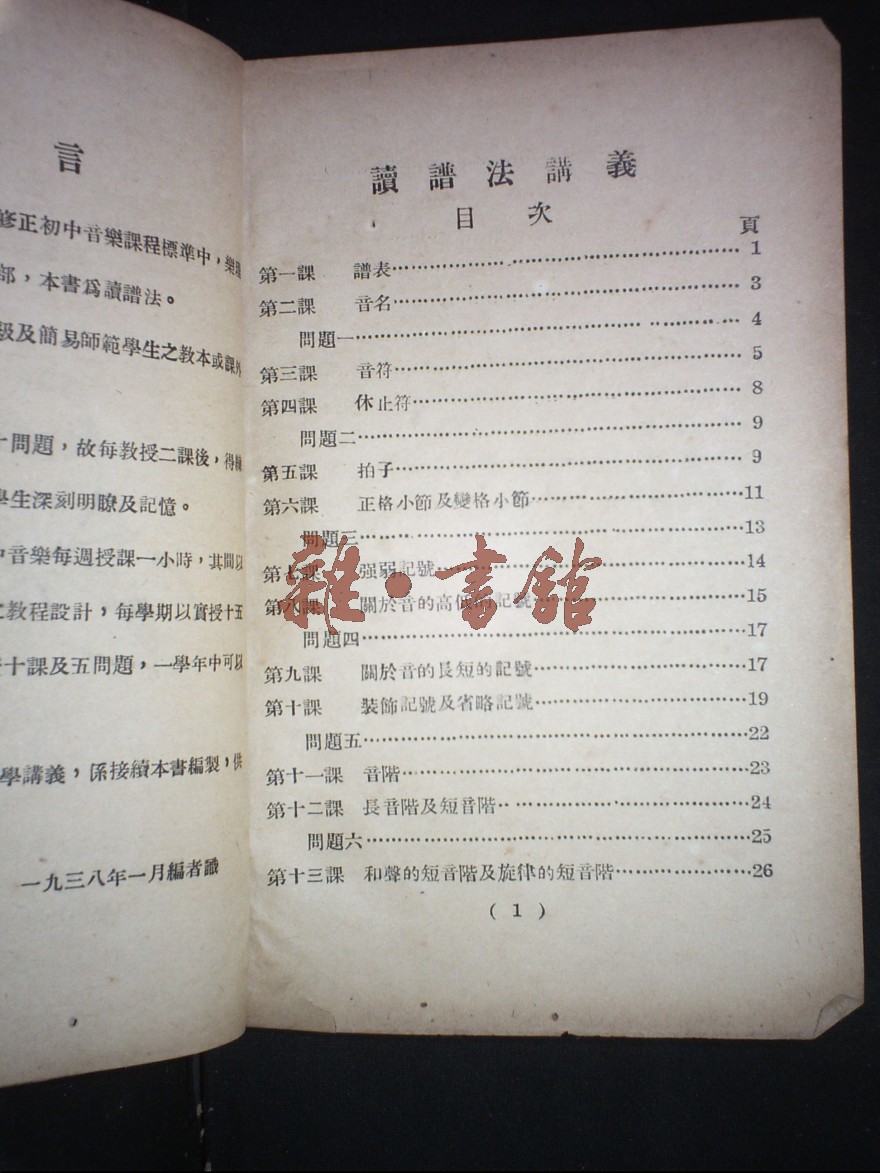 言
修正初中音樂課程標準中，樂理
部，本書爲讀譜法。
級及簡易師範學生之教本或課外
問題，故每教授二課後，得
學生深刻明瞭及記憶。
中音樂每週授課一小時，其間以
教程設計，每學期以實授十五
十課及五問題，一學年中可以
學講義，係接續本書編製，供
一九三八年一月編者識
讀譜法講義
目次
頁
第一課 譜表……1
第二課 音名……3
問題一……4
第三課 音符……5
第四課 休止符……8
問題二……9
第五課 拍子……9
第六課 正格小節及變格小節……11
問題三……13
第七課 强弱記號……14
第八課 關於音的高低的記號……15
問題四……17
第九課 關於音的長短的記號……17
第十課 裝飾記號及省略記號……19
問題五……22
第十一課 音階……23
第十二課 長音階及短音階……24
問題六……25
第十三課 和聲的短音階及旋律的短音階……26
( 1 )
雜·書館